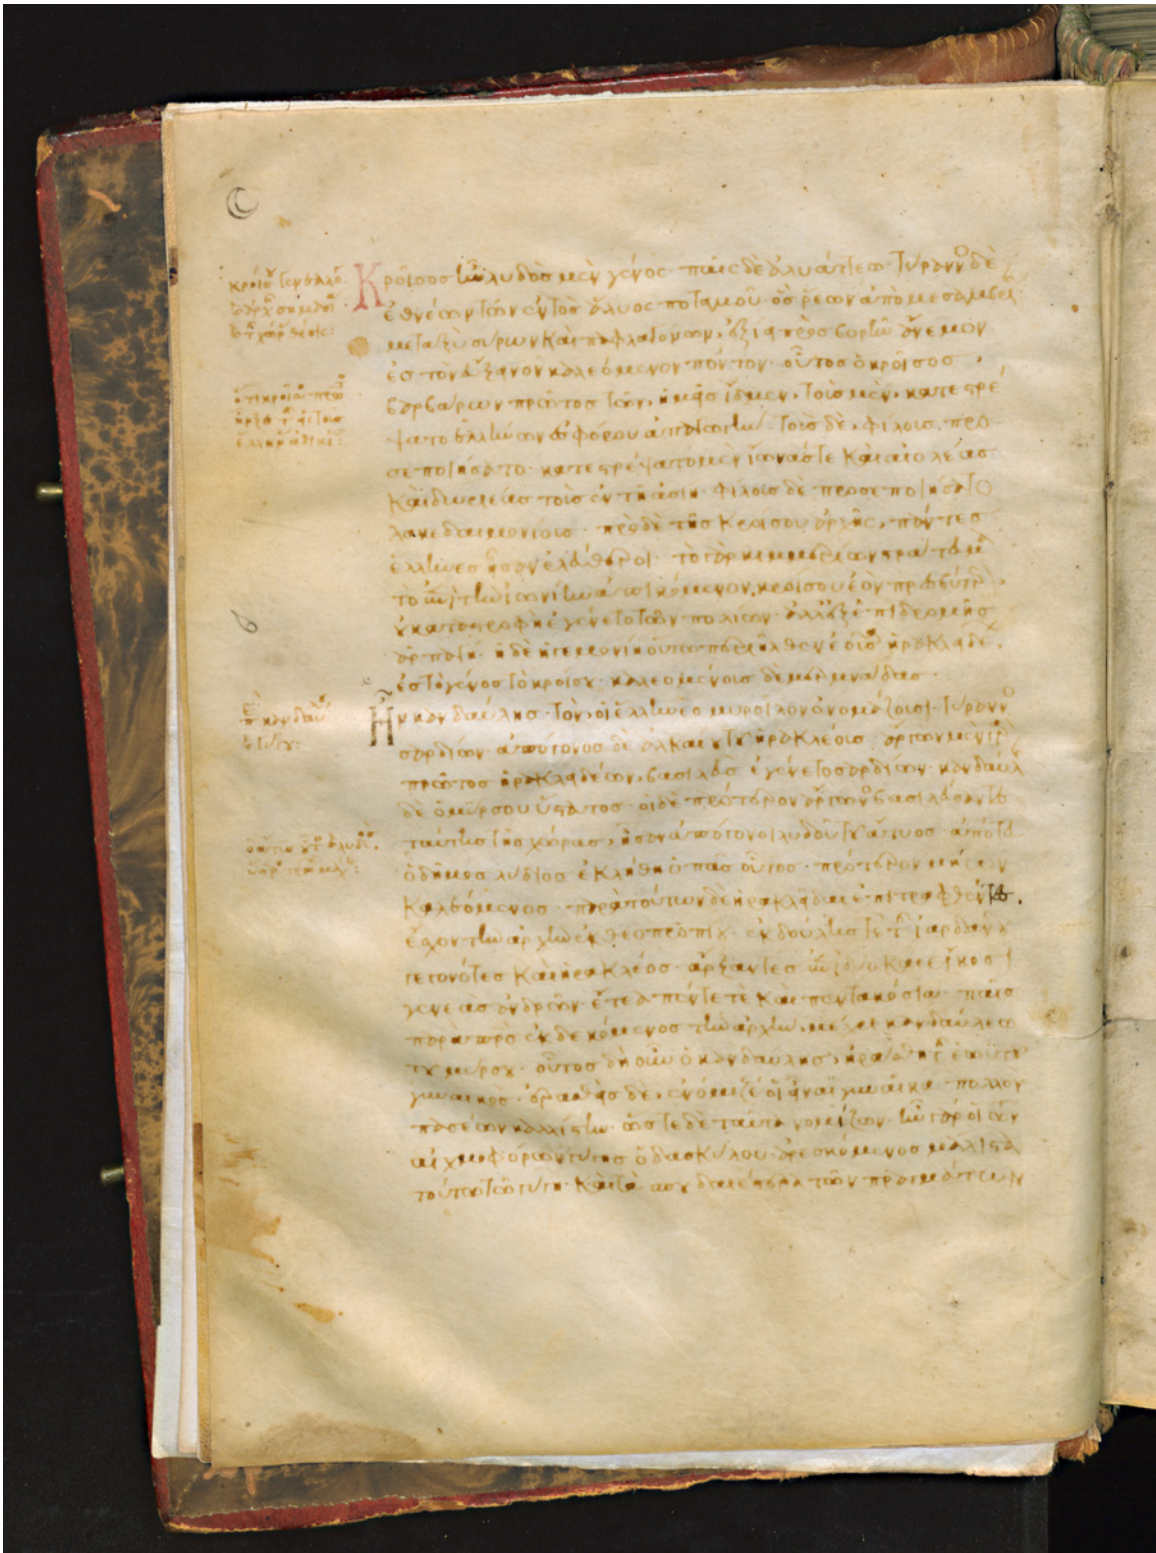 Κροῖσος ἦν λυδὸς μὲν γένος· παῖς δὲ ἀλυάττεω· τύραννος δὲ
ἐθνέων τῶν ἐντὸς ἅλυος ποταμοῦ· ὃς ῥέων ἀπὸ μεσαμβρίης
μεταξὺ σύρων καὶ παφλαγόνων, ἐξίει πρὸς βορῆν ἄνεμον
ἐς τὸν εὔξεινον καλεόμενον πόντον· οὗτος ὁ κροῖσος,
βαρβάρων πρῶτος τῶν, ἡμεῖς ἴδμεν, τοὺς μὲν, κατεστρέ
ψατο ἑλλήνων ἐς φόρου ἀπαγωγήν· τοὺς δὲ, φίλους προ
σεποιήσατο· κατεστρέψατο μὲν ἴωνάς τε καὶ αἰολέας
καὶ δωριέας τοὺς ἐν τῇ ἀσίῃ· φίλους δὲ προσεποιήσατο
λακεδαιμονίους· πρὸ δὲ τῆς κροίσου ἀρχῆς, πάντες
ἕλληνες ἦσαν ἐλεύθεροι· τὸ γὰρ κιμμερίων στράτευμα
τὸ ἐπὶ τὴν ἰωνίην ἀπικόμενον, κροίσου ἐὸν πρεσβύτερον,
οὐ καταστροφὴ ἐγένετο τῶν πολίων· ἀλλ' ἐξ ἐπιδρομῆς
ἁρπαγή· ἡ δὲ ἡγεμονίη οὕτω περιῆλθεν ἐοῦσα ἡρακλειδέων,
ἐς τὸ γένος τὸ κροίσου· καλεομένους δὲ μερμνάδας·
Ἦν κανδαύλης· τὸν, οἱ ἕλληνες μυρσίλον ὀνομάζουσι· τύραννος
σαρδίων· ἀπόγονος δὲ ἀλκαίου τοῦ ἡρακλέους· ἄγρων μὲν γὰρ
πρῶτος ἡρακλειδέων, βασιλεὺς ἐγένετο σαρδίων· κανδαύλης
δὲ ὁ μύρσου ὕστατος· οἱ δὲ πρότερον ἄγρωνος βασιλεύσαντες
ταύτης τῆς χώρας, ἦσαν ἀπόγονοι λυδοῦ τοῦ ἄτυος· ἀπ' ὅτευ
ὁ δῆμος λύδιος ἐκλήθη ὁ πᾶς οὗτος· πρότερον μηίων
καλεόμενος· παρὰ τούτων δὲ ἡρακλεῖδαι ἐπιτραφθέντες.
ἔσχον τὴν ἀρχὴν ἐκ θεοπροπίου· ἐκ δούλης τε τῆς ἰαρδάνου
γεγονότες καὶ ἡρακλέος· ἄρξαντες ἐπὶ δύο καὶ εἴκοσι
γενεὰς ἀνδρῶν· ἔτεα πέντε τε καὶ πεντακόσια· παῖς
παρὰ πατρὸς ἐκδεκόμενος τὴν ἀρχὴν, μέχρι κανδαύλεω
τοῦ μύρσου· οὗτος δὴ ὦν ὁ κανδαύλης, ἠράσθη τῆς ἑωυτοῦ
γυναικός· ἐρασθεὶς δὲ, ἐνόμιζέ οἱ εἶναι γυναῖκα πολλὸν
πασέων καλλίστην· ὥστε δὲ ταῦτα νομίζων· ἦν γάρ οἱ τῶν
αἰχμοφόρων γύγης ὁ δασκύλου ἀρεσκόμενος μάλιστα
τούτῳ τῷ γύγῃ· καὶ τὰ σπουδαιέστερα τῶν πρηγμάτων